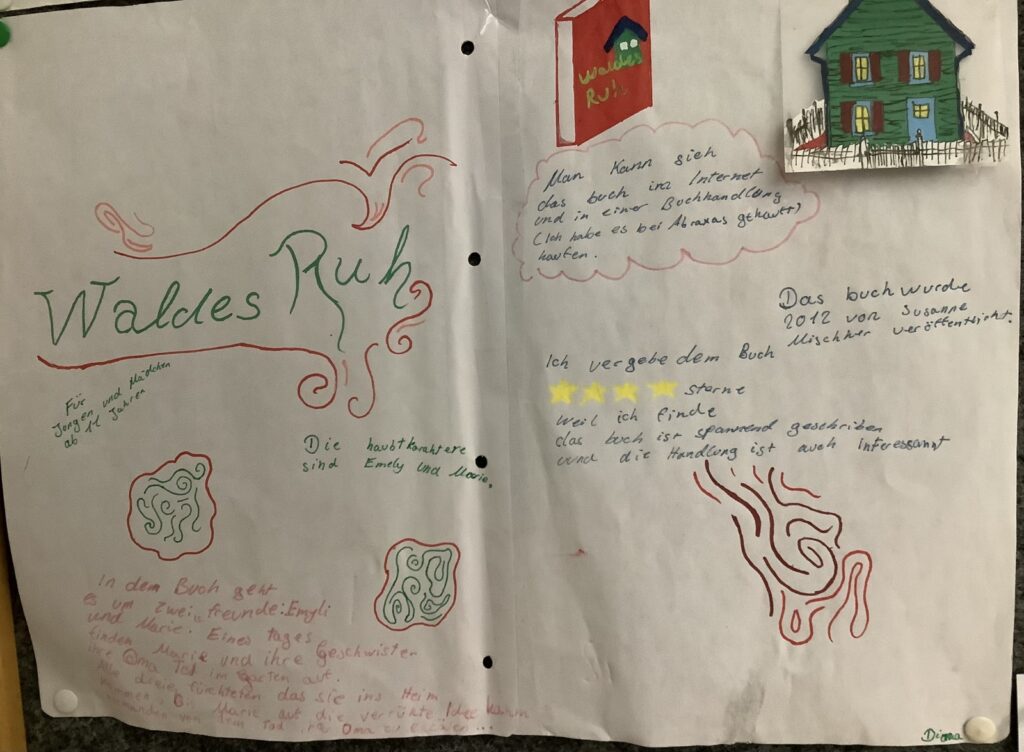 Waldes Ruh
Für
Jungen und Mädchen
ab 11 Jahren
Die haubtkaraktere
sind Emely und Marie.
In dem Buch geht
es um zwei freunde: Emyli
und Marie. Eines tages
finden Marie und ihre Geschwister
ihre Oma Tot im Garten auf.
Alle dreie fürchteten das sie ins Heim
kommen, Marie auf die verrükte Idee kamm
von dem Tod Oma
Waldes
Ruh
Man kann sich
das buch im Internet
und in einer Buchhandlung
(Ich habe es bei Abraxas gekauft)
kaufen.
Das buch wurde
2012 von Susanne
Mischke veröffentlicht.
Ich vergebe dem Buch
sterne
weil ich finde
das buch ist spannend geschriben
und die Handlung ist auch interessannt